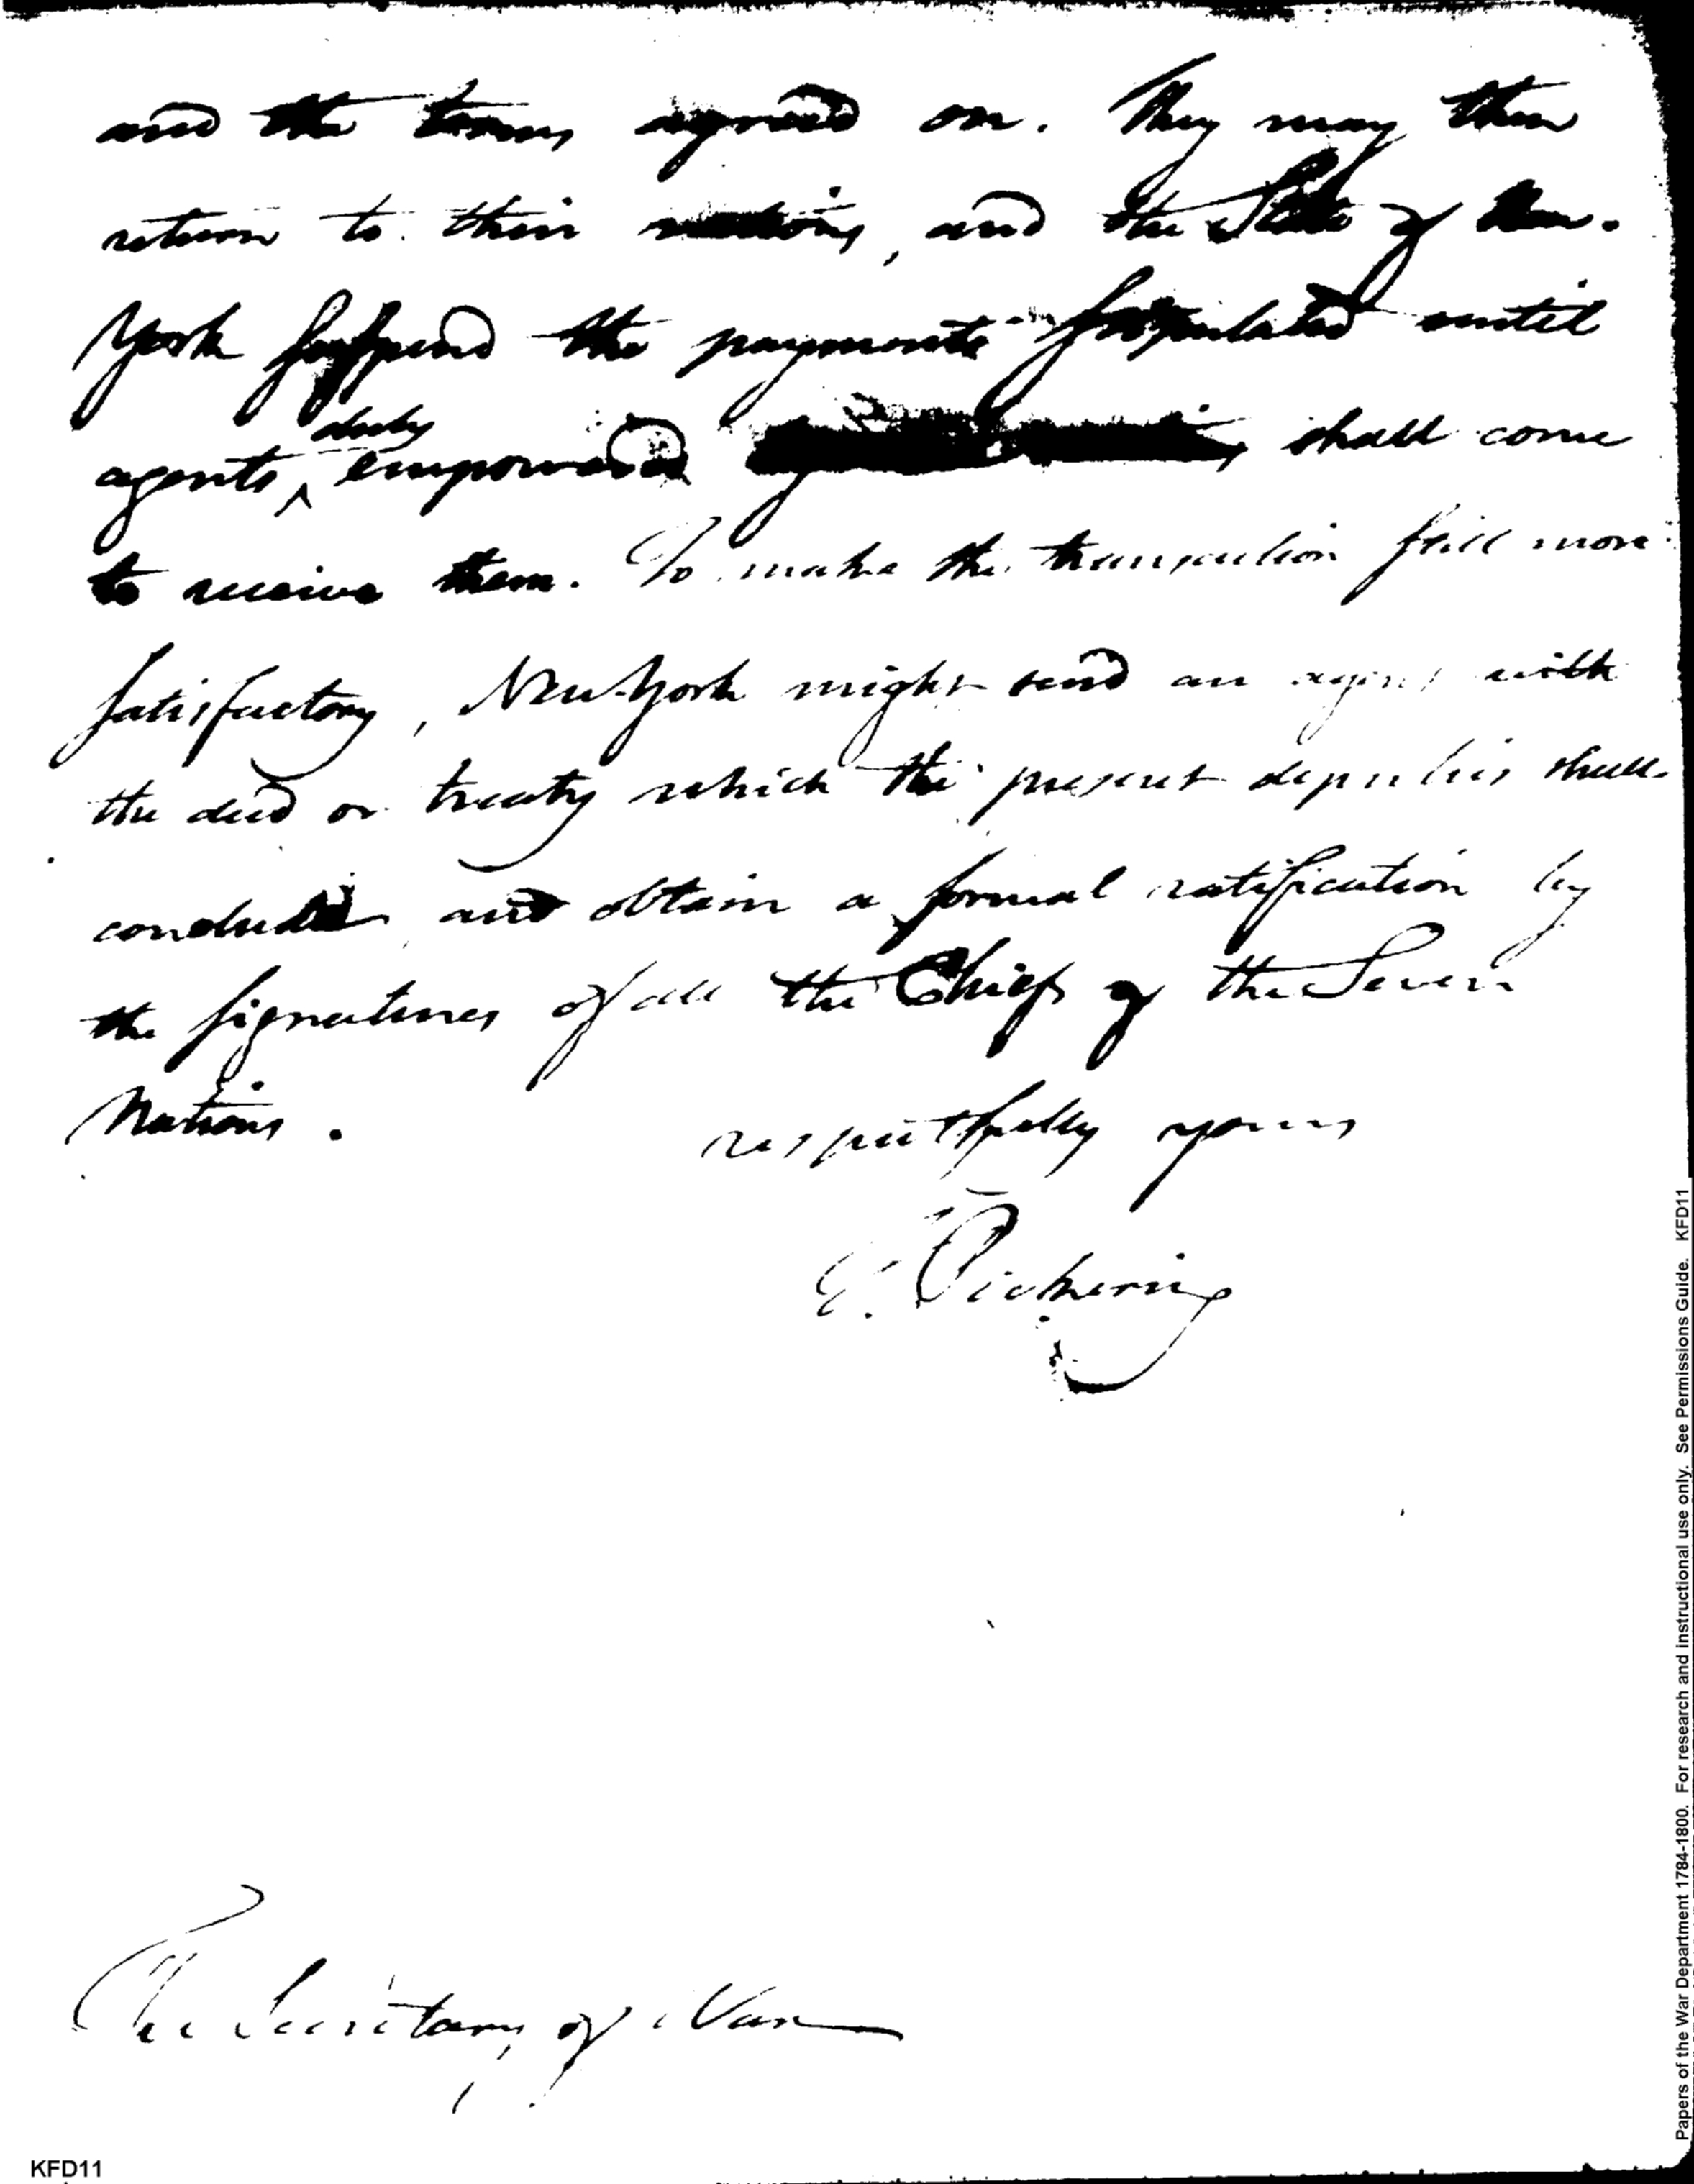 and the terms agreed on. They may then
return to their nations, and the State of New-
York suspend the payments stipulated until
duly
agents, empowered shall come
to receive them. To make the transaction still more
satisfactory, New-York might send an agent with
the deed or treaty which the present deputies shall
conclude and obtain a formal ratification by
the signatures of all the Chiefs of the Seven
Nations.
respectfully yours
T. Pickering
The Secretary of War
KFD11
Papers of the War Department 1784-1800. For research and instructional use only. See Permissions Guide. KFD11